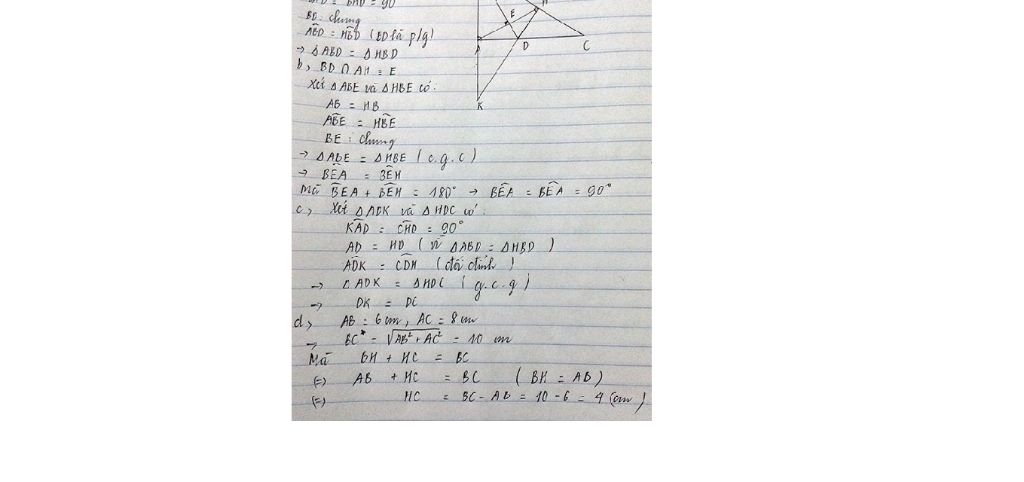 = 90°
BD: chung
ABD = HBD (BD là p/g)
→ ΔABD = ΔHBD
b, BD ∩ AH = E
Xét ΔABE và ΔHBE có:
AB = HB
ABE = HBE
BE : chung
→ ΔABE = ΔHBE (c.g.c)
→ BEA = BEH
Mà BEA + BEH = 180° → BEA = BEA = 90°
c, Xét ΔADK và ΔHDC có:
KAD = CHD = 90°
AD = HD (vì ΔABD = ΔHBD)
ADK = CDH (đối đỉnh)
→ ΔADK = ΔHDC (g.c.g)
→ DK = DC
d, AB = 6 cm, AC = 8 cm
→ BC = √AB² + AC² = 10 cm
Mà BH + HC = BC
(=) AB + HC = BC (BH = AB)
(=) HC = BC - AB = 10 - 6 = 4 (cm)
E
H
A
D
C
K